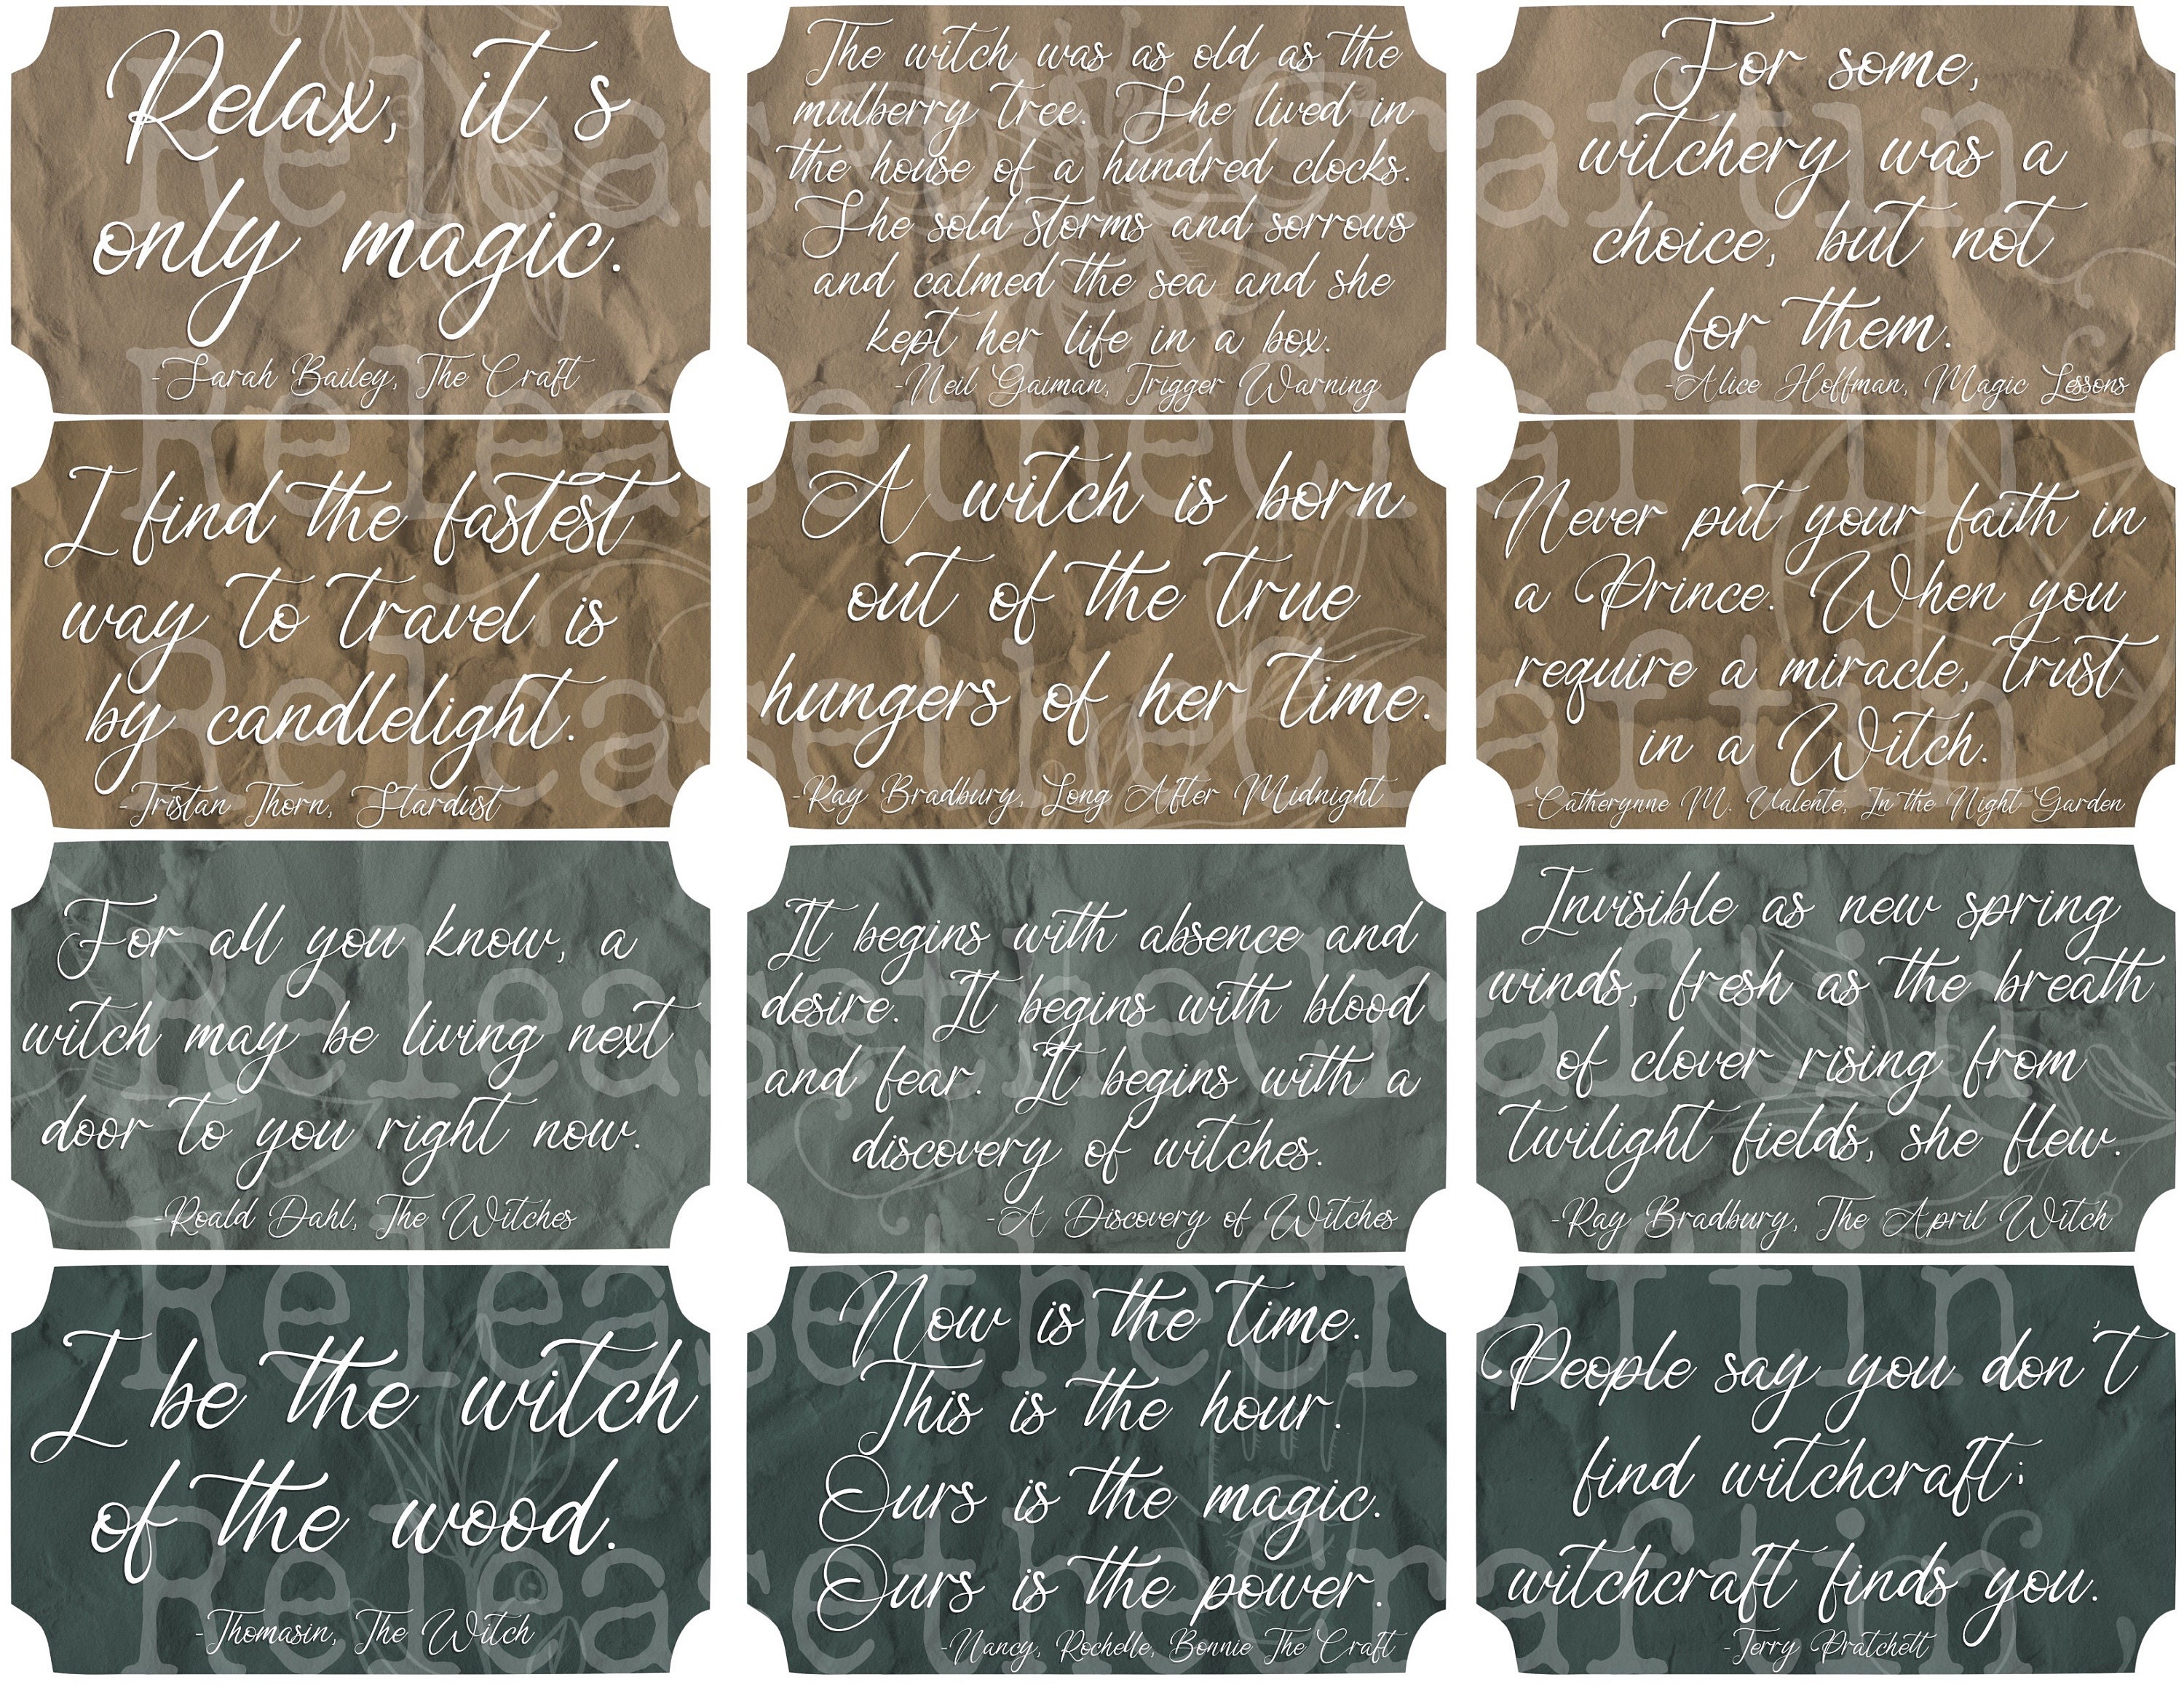 Relax, it s
only magic.
-Sarah Bailey, The Craft
The witch was as old as the
mulberry tree. She lived in
the house of a hundred clocks.
She sold storms and sorrows
and calmed the sea and she
kept her life in a box.
-Neil Gaiman, Trigger Warning
For some,
witchery was a
choice, but not
for them.
-Alice Hoffman, Magic Lessons
I find the fastest
way to travel is
by candlelight.
-Tristan Thorn, Stardust
A witch is born
out of the true
hungers of her time.
-Ray Bradbury, Long After Midnight
Never put your faith in
a Prince. When you
require a miracle, trust
in a Witch.
-Catherynne M. Valente, In the Night Garden
For all you know, a
witch may be living next
door to you right now.
-Roald Dahl, The Witches
It begins with absence and
desire. It begins with blood
and fear. It begins with a
discovery of witches.
-A Discovery of Witches
Invisible as new spring
winds, fresh as the breath
of clover rising from
twilight fields, she flew.
-Ray Bradbury, The April Witch
I be the witch
of the wood.
-Thomasin, The Witch
Now is the time.
This is the hour.
Ours is the magic.
Ours is the power.
-Nancy, Rochelle, Bonnie The Craft
People say you don't
find witchcraft;
witchcraft finds you.
-Terry Pratchett
ReleasetheCraftin
ReleasetheCraftin
ReleasetheCraftin
ReleasetheCraftin
ReleasetheCraftin
ReleasetheCraftin
ReleasetheCraftin